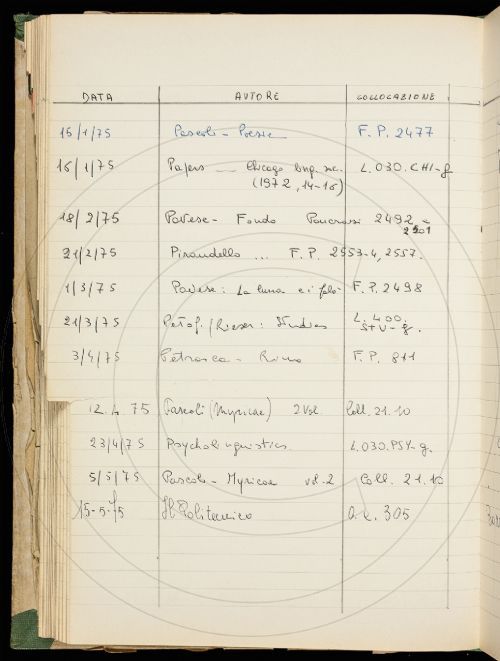 DATA AUTORE COLLOCAZIONE
15/1/75 Pascoli - Poesie F. P. 2477
16/1/75 Papers Chicago ling. soc. L. 030. CHI-g
(1972, 14-16)
18/2/75 Pavese - Fondo 2492 -
2501
21/2/75 Pirandello ... F. P. 2553-4, 2557.
1/3/75 Pavese: La luna e i falò F. P. 2498
21/3/75 Petöf./Rieser: Studies L. 400.
STU - g.
3/4/75 Petrarca - Rime F. P. 811
12. 4. 75 Pascoli (Myricae) 2 Vol. Coll. 21. 10
23/4/75 Psycholinguistics L. 030. PSY-g.
5/5/75 Pascoli - Myricae vol. 2 Coll. 21. 10
15-5-75 Il Politecnico 305